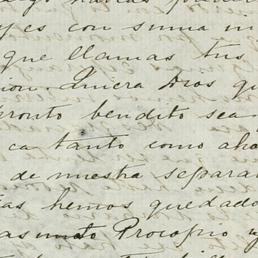 yes con suma in
que llamas tus
on. Quiera Dios qu
pronto bendito sea
ca tanto como aho
de nuestra separa
ías hemos quedado
asunto Procopio y